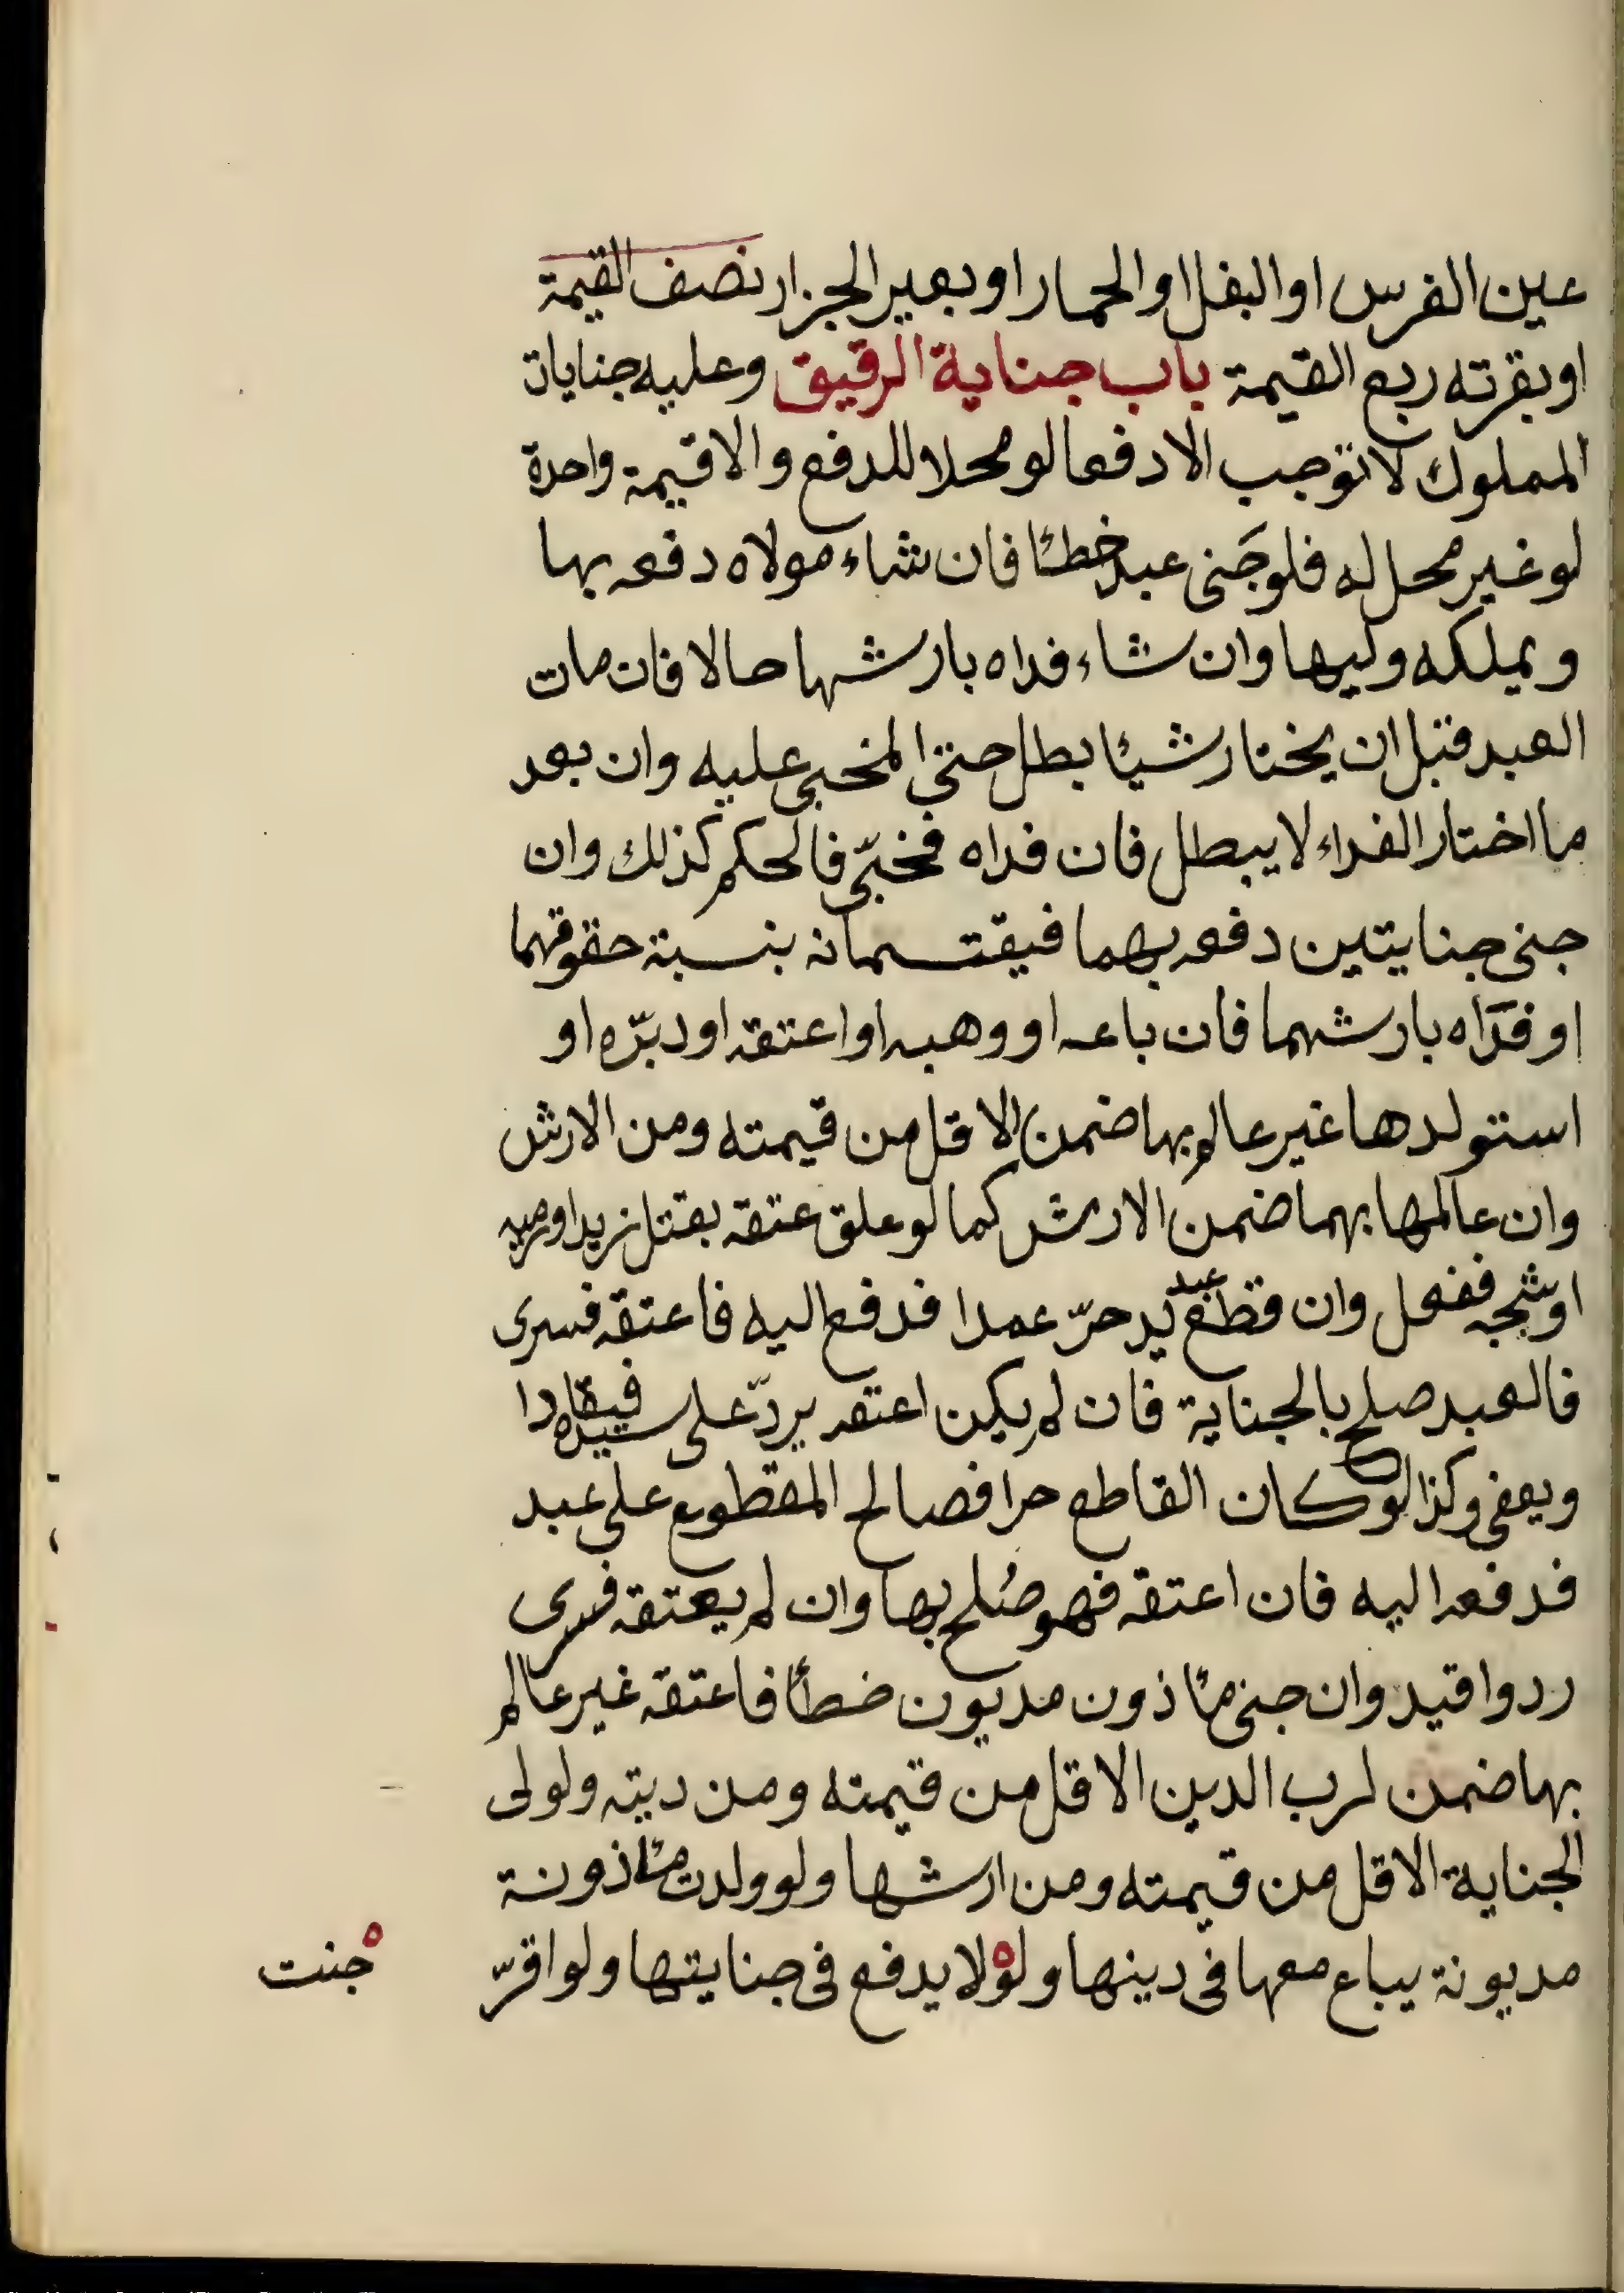 عين الفرس او البغل او الحمار او بعير الجزار نصف القيمة
او بقرته ربع القيمة باب جناية الرقيق وعليه جنايات
المملوك لا توجب الا دفعا لو محلا للدفع والا قيمة واحدة
لو غير محل له فلو جَنى عبد خطئا فان شاء مولاه دفعه بها
ويملكه وليها وان شاء فداه بارشها حالا فان مات
العبد قبل ان يختار شيئا بطل حتى المجنى عليه وان بعد
ما اختار الفداء لا يبطل فان فداه فجنى فالحكم كذلك وان
جنى جنايتين دفعه بهما فيقتسمانه بنسبة حقوقهما
او فدَاه بارشهما فان باعه او وهبه او اعتقه او دبّره او
استولدها غير عالم بها ضمن الاقل من قيمته ومن الارش
وان عالمها بهما ضمن الارش كما لو علق عتقه بقتل زيد او رميه
او شجه ففعل وان قطع عبد يد حرّ عمدا فدفع اليه فاعتقه فسرى
فالعبد صلح بالجناية فان لم يكن اعتقه يردّ على سيده فيقادا
ويعفى وكذا لو كان القاطع حرا فصالح المقطوع على عبد
فدفعه اليه فان اعتقه فهو صُلح بها وان لم يعتقه فسرى
ردوا قيد وان جنى مئاذون مديون خطأ فاعتقه غير عالم
بها ضمن لرب الدين الاقل من قيمته ومن ديته ولولى
الجناية الاقل من قيمته ومن ارشها ولو ولدت مئاذونة
مديونة يباع معها فى دينها ولو لا يدفع فى جنايتها ولو اقرّ
جنت